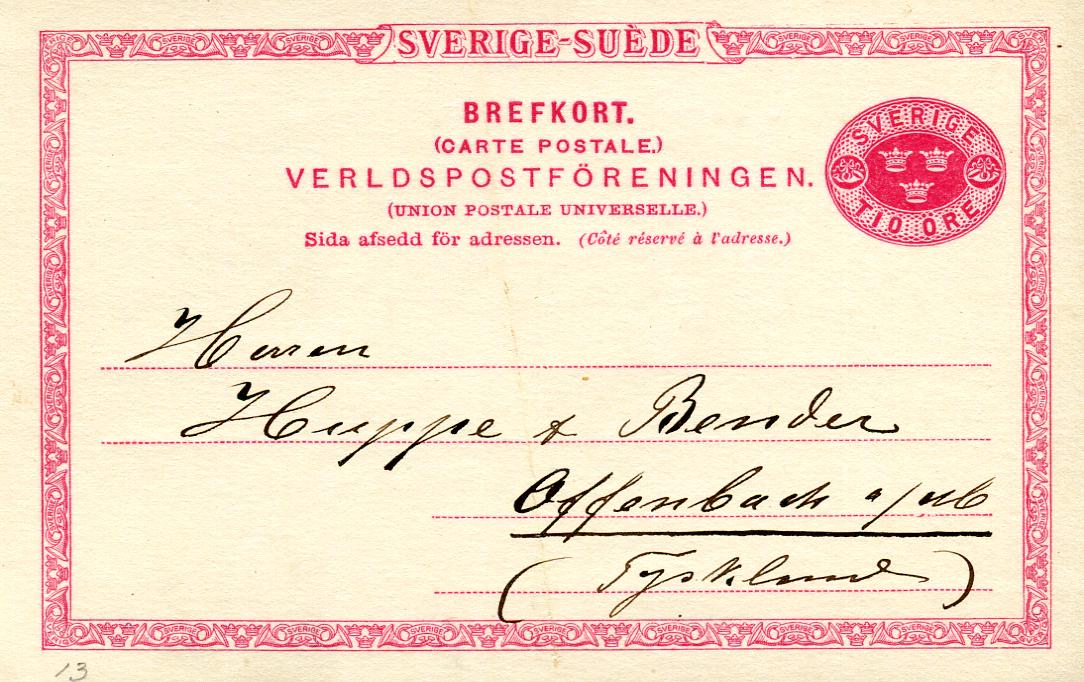 SVERIGE-SUÈDE
BREFKORT.
(CARTE POSTALE.)
VERLDSPOSTFÖRENINGEN.
(UNION POSTALE UNIVERSELLE.)
Sida afsedd för adressen. (Côté réservé à l'adresse.)
SVERIGE
TIO ÖRE
Herren
Huppe & Bender
Offenbach a/M
(Tyskland)
13